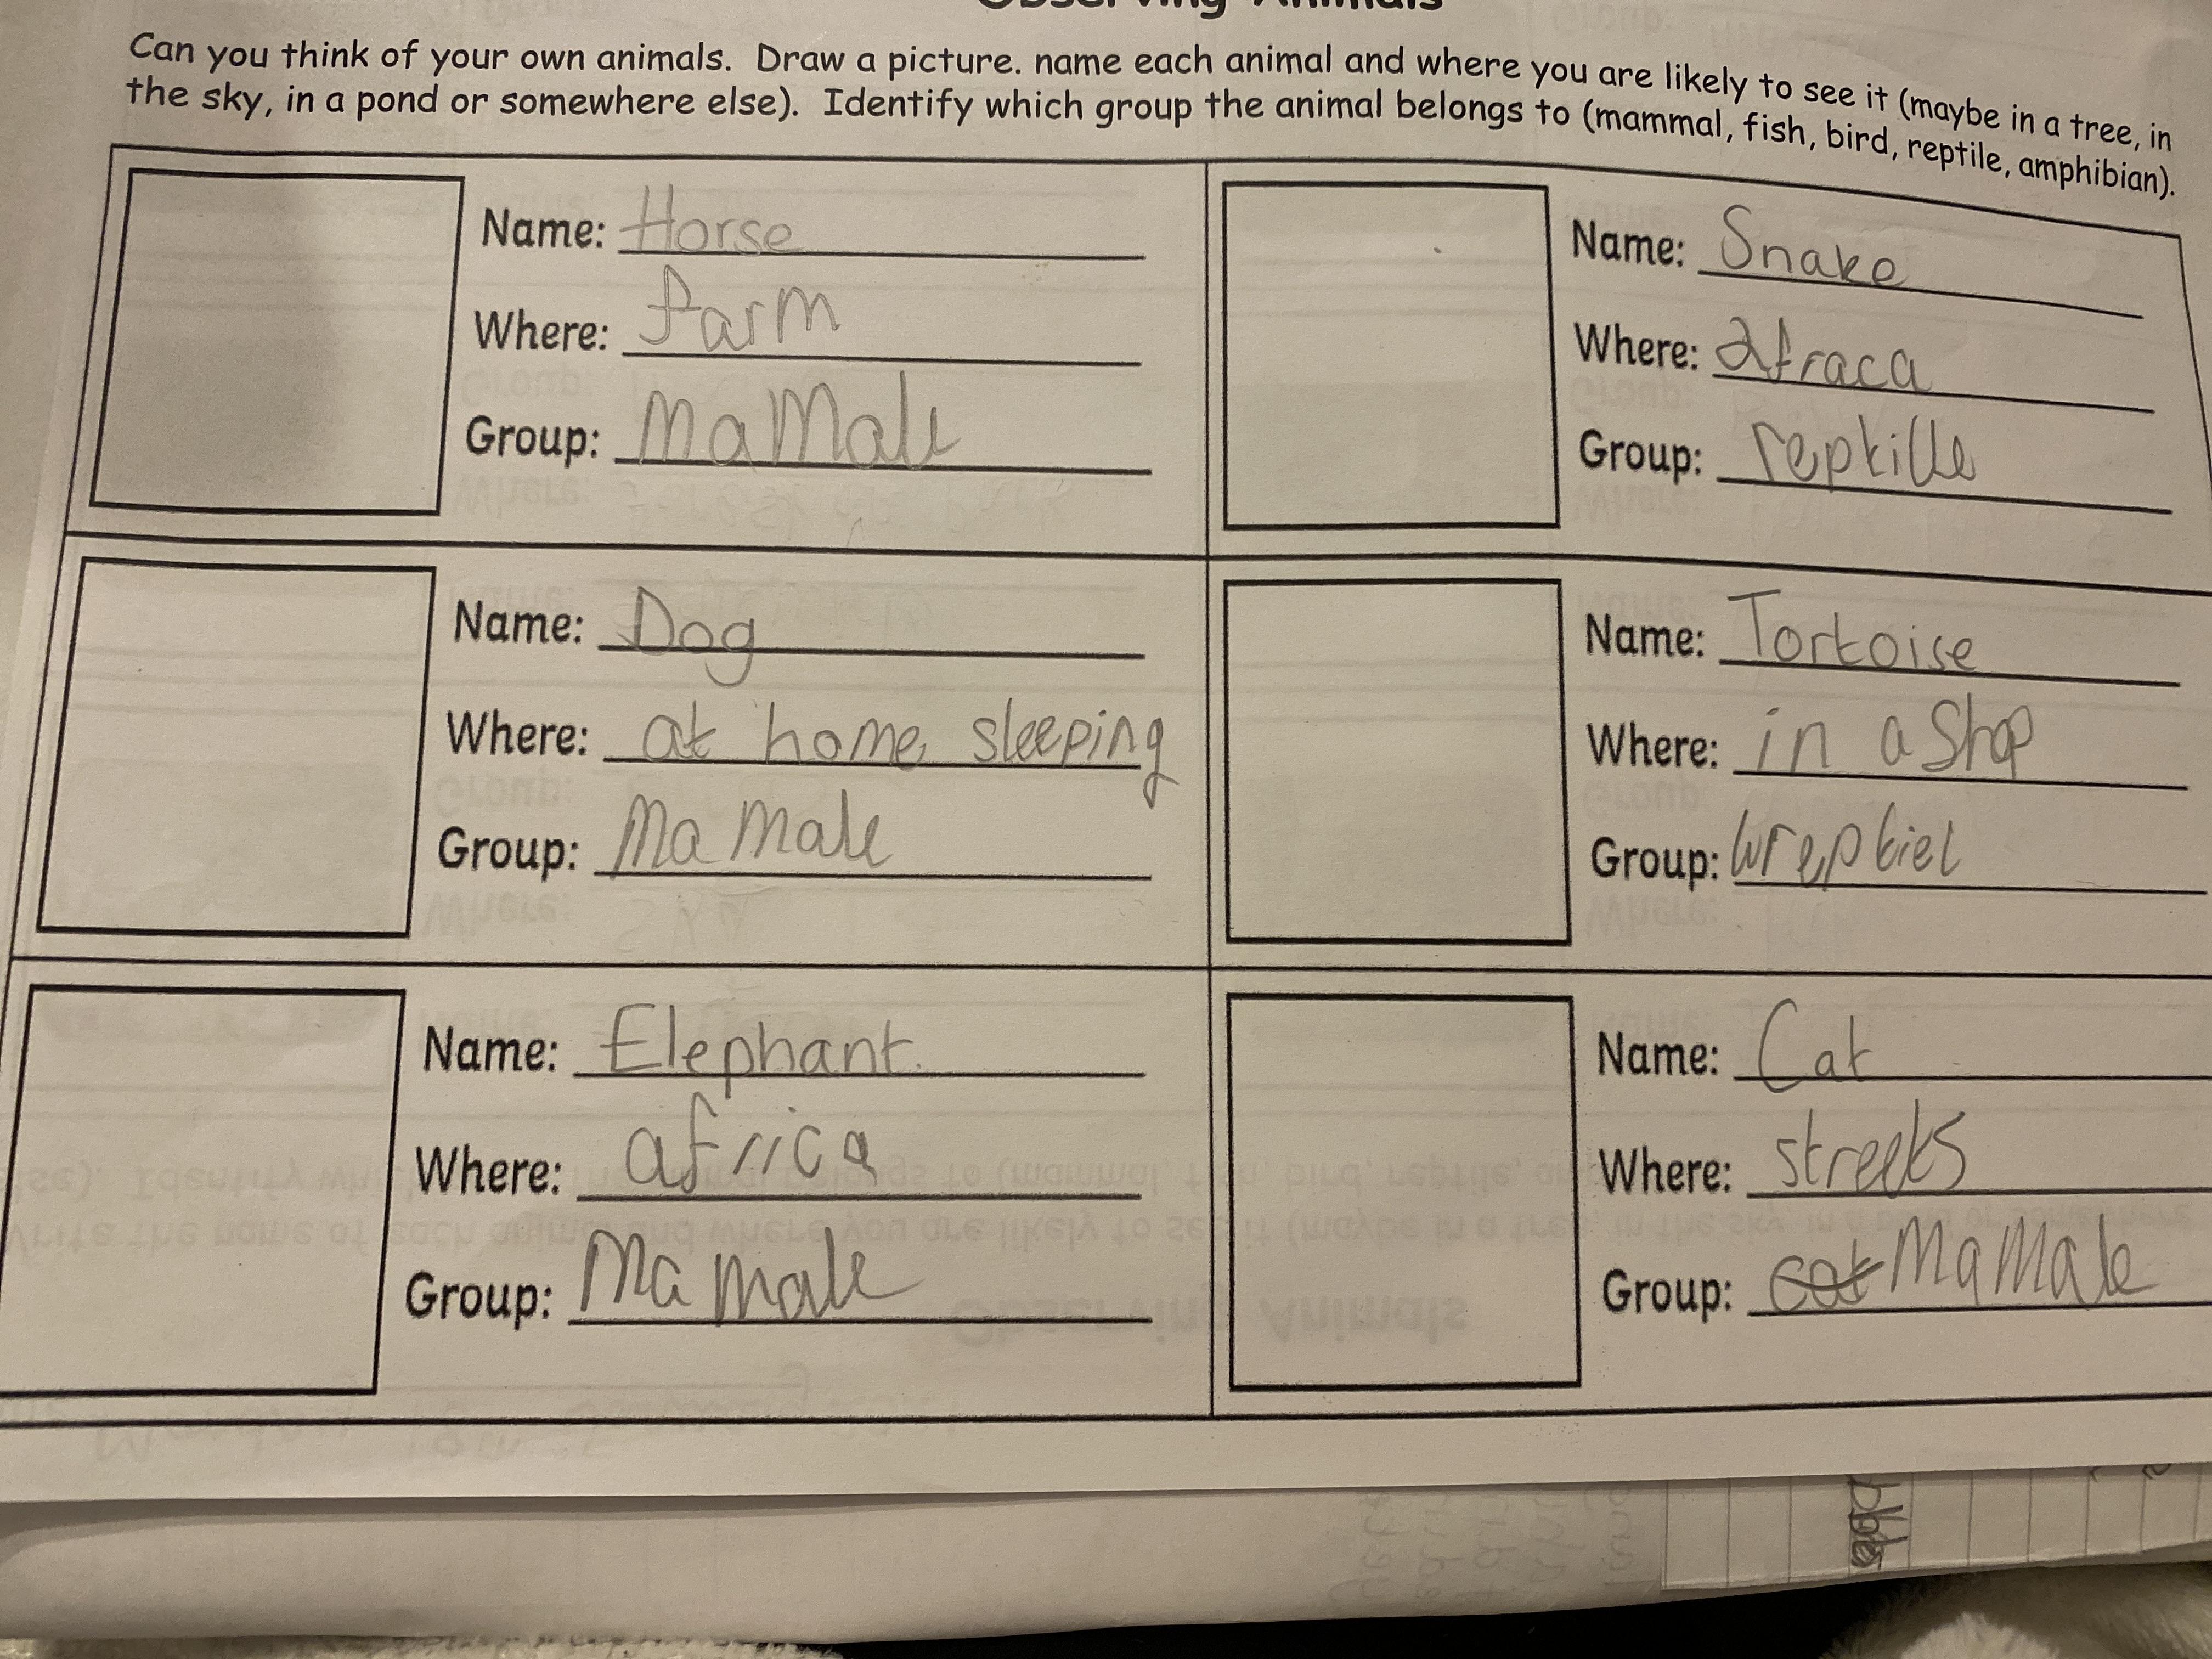 Observing Animals
Can you think of your own animals. Draw a picture. name each animal and where you are likely to see it (maybe in a tree, in
the sky, in a pond or somewhere else). Identify which group the animal belongs to (mammal, fish, bird, reptile, amphibian).
Name: Horse
Where: farm
Group: mamale
Name: Snake
Where: afraca
Group: reptille
Name: Dog
Where: at home sleeping
Group: Mamale
Name: Tortoise
Where: in a shop
Group: wreptiel
Name: Elephant.
Where: africa
Group: Mamale
Name: Cat
Where: streets
Group: cat MaMale